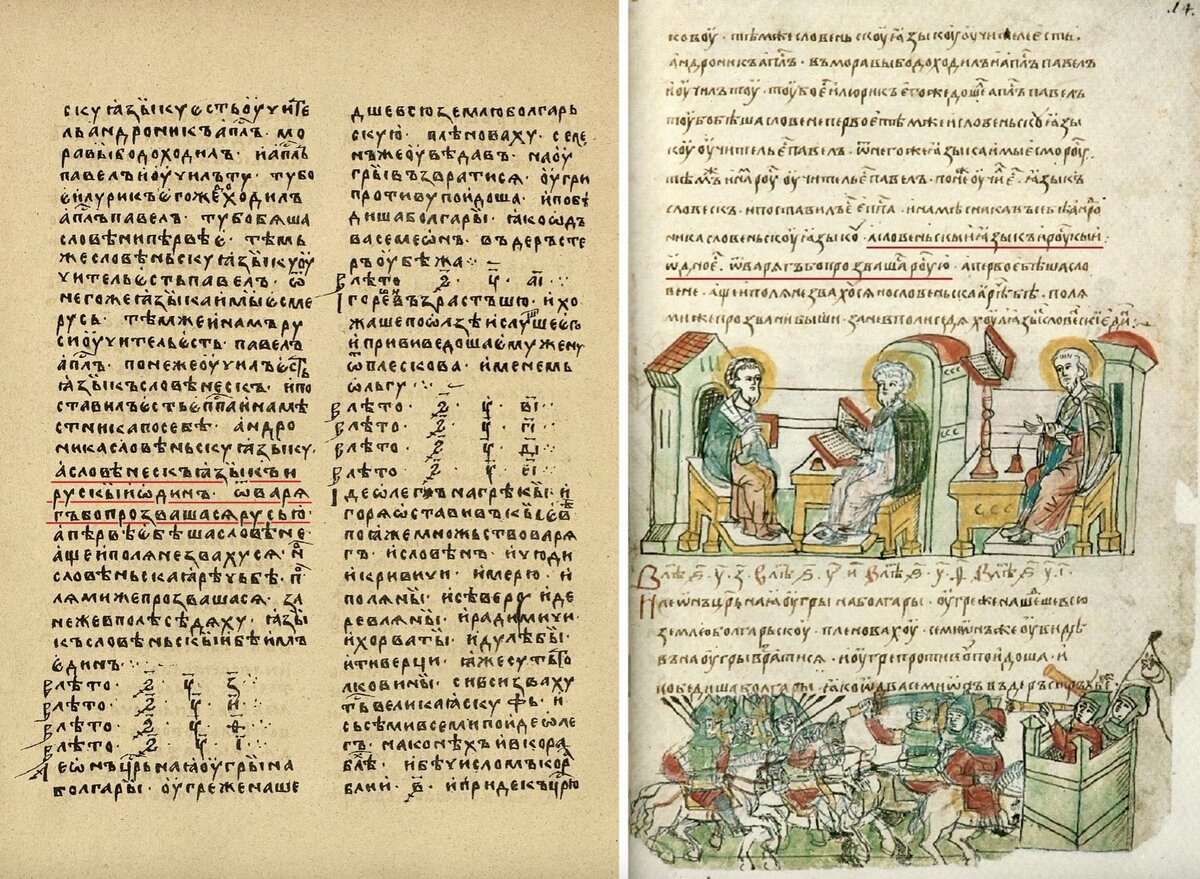 скуꙗзыкуєстьоучите
льандроникъап҃лъ· мо
равыбодоходилъ· иап҃лъ
павелъиоучилъту· тубо
єилурикъєгожедоходилъ
ап҃лъпавелъ· тубобѧша
словѣнипѣрвѣє· тѣмь
жесловѣньскуꙗзыкуоу
учительєстьпавелъ· ѿ
негожеꙗзыкаимыєсме
русь· тѣмжеинамъру
сиоучительєстьпавелъ
ап҃лъ· понежеоучилъєсть
ꙗзыкъсловѣнескъ· ипо
ставилъєстьєп҃паинамѣ
стникапосебѣ· андро
никасловѣньскуꙗзыку·
асловѣнескъꙗзыкъи
рускыиѡдинъ· ѿварѧ
гъбопрозвашасѧрусью·
апѣрвѣєбѣшасловѣне·
ащеиполѧнезвахусѧ· н
словѣньскаꙗрѣчьбѣ· п
олѧмижепрозвашасѧ· за
нежевполѣсѣдѧху· ꙗзы
късловѣньскыибѣимъ
єдинъ·
влѣто· ҂ѕ҃· у҃· з҃·
влѣто· ҂ѕ҃· у҃· и҃·
влѣто· ҂ѕ҃· у҃· ѳ҃·
влѣто· ҂ѕ҃· у҃· і҃·
леѡнъцр҃ьнаꙗоугрына
болгары· оугреженаше
дшевсюземлюболгарь
скую· плѣноваху· семе
нъжеоувѣдавъ· наоу
грывъзвратисѧ· оугри
противупоидоша· ипобѣ
дишаболгары· ꙗкоѡдъ
васемеѡнъ· въдерьсте
ръоубѣжа·
влѣто· ҂ѕ҃· у҃· аі҃·
горѣвъзрастъшю· ихо
жашепоѡлзѣислушаєго
иприведошаємужену
ѿплескова· именемь
ѡльгу·
влѣто· ҂ѕ҃· у҃· ві҃·
влѣто· ҂ѕ҃· у҃· гі҃·
влѣто· ҂ѕ҃· у҃· ді҃·
влѣто· ҂ѕ҃· у҃· єі҃·
идеѡлегънагрѣкы· и
горѧѡставивъкыєвѣ
поꙗжемножьствоварѧ
гъ· исловѣнъ· ичюди
икривичи· имерю· и
полѧны· исѣверо· иде
ревлѧны· ирадимичи·
ихорваты· идулѣбы·
итиверци· ꙗжесутьто
лковины· сисивсизваху
тьвеликаꙗскуфь· и
сьсѣмивсемипоидеѡле
гъ· наконѣхъивкора
блѣ· ибѣчисломъкор
блии· ҂в҃· ипридекъцр҃ю
14.
ковоу· тѣмжесловеньскоуꙗзыкоуоучителеєсть·
андроникъап҃лъ· въморавыбодоходилъиап҃лъпавелъ
иоучилътоу· тоубоє҃илюрикъєгождоше҃ап҃лъпавелъ
тоубобѣшасловенепервоє· тѣмжеисловеньскоуꙗзы
коуоучительє҃павелъ· ѿнегожеꙗзыкаимыєсмороу·
тѣмжинамъроуоучительє҃павелъ· понеоучие҃· ꙗзыкъ
словескъ· ипоставилъє҃єп҃па· инамѣсникавъсебѣандро
никасловеньскоуꙗзыко· асловеньскыиꙗзыкъироукыи
ѡдноє· ѿварѧгъбопрозвашароую· апервоєбѣшасло
вене· ащеиполѧнезвахосѧнословеньскаꙗрѣбѣ· полѧ
мижепрозванибыши· заневполиседѧхоуꙗзысловескиєди·
Влѣ҂ѕ҃·у҃·з҃· Влѣ҂ѕ҃·у҃·и҃· Влѣ҂ѕ҃·у҃·ѳ҃· Влѣ҂ѕ҃·у҃·і҃·
Илеѡнъцр҃ьнаꙗоугрынаболгары· оугреженашешевсю
землюболгарьскоу· пленовахоу· семиѡнъжеоувидѣ
въна оугрывратисѧ· иоугрепротивопоидоша· и
победишаболгары· ꙗкоѡдвасемиѡнъвъдерьстръбѣ·